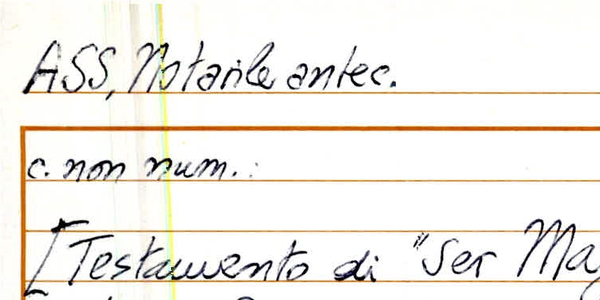 ASS, Notarile antec.
c. non num.:
[Testamento di "Ser Ma